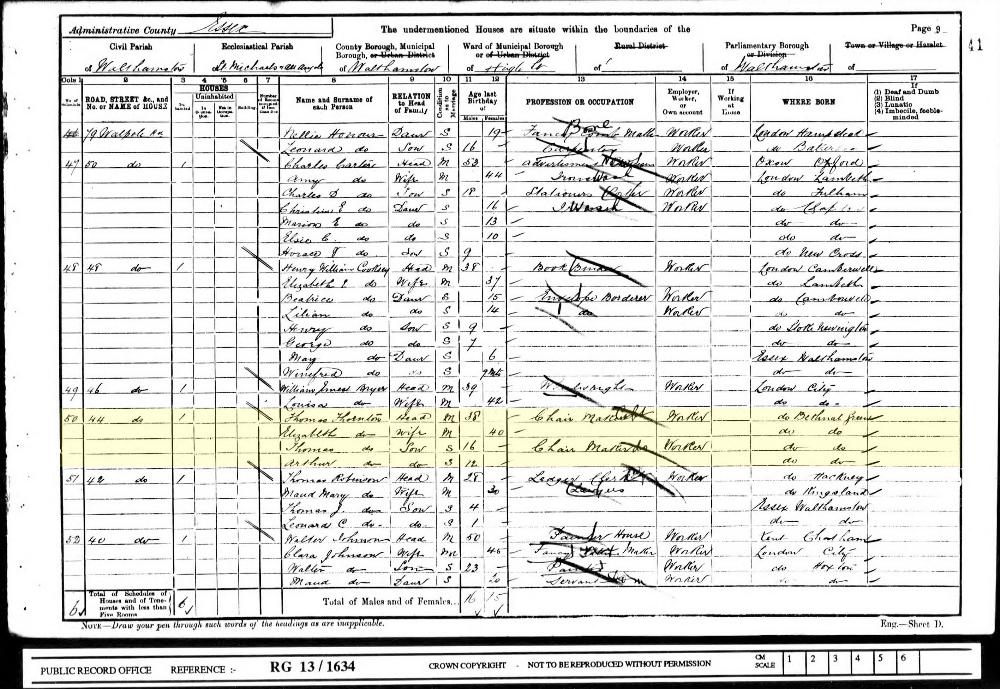 Administrative County Essex The undermentioned Houses are situate within the boundaries of the Page 9
41
Civil Parish Ecclesiastical Parish County Borough, Municipal Borough, or Urban District Ward of Municipal Borough or of Urban District Rural District Parliamentary Borough or Division Town or Village or Hamlet
of Walthamstow St Michaels & All Angels of Walthamstow of High St of of Walthamstow of
Cols 1 2 3 4 5 6 7 8 9 10 11 12 13 14 15 16 17
ROAD, STREET &c., and No. or NAME of HOUSE HOUSES Inhabited Uninhabited Name and Surname of each Person RELATION to Head of Family Condition as to Marriage Age last Birthday of Males Females PROFESSION OR OCCUPATION Employer, Worker, or Own account If Working at Home WHERE BORN If (1) Deaf and Dumb (2) Blind (3) Lunatic (4) Imbecile, feeble-minded
79 Walpole Rd Nellie Honour Daur S 19 Worker London Hampstead
Leonard do Son S 16 Carpenter Worker do
47 50 do 1 Charles Carter Head M 53 Worker Oxon Oxford
Amy do Wife M 44 Worker London Lambeth
Charles D. do Son S 18 Stationers Worker do Fulham
Christine E do Daur S 16 Worker do
Marion E do do S 13 do do
Elsie C. do do S 10 do do
Horace F do Son S 9 do New Cross
48 48 do 1 Henry William Cooksey Head M 38 Book Binder Worker London Camberwell
Elizabeth E do Wife M 37 do Lambeth
Beatrice do Daur S 15 Envelope Borderer Worker do Camberwell
Lilian do do S 14 do Worker do do
Henry do Son S 9 do Stoke Newington
George do do S 7 do do
May do Daur S 6 Essex Walthamstow
Winefred do do S 9 Mts do do
49 46 do 1 William Ernest Bryer Head M 39 Worker London City
Louisa do Wife M 42 do do
50 44 do 1 Thomas Thornton Head M 38 Chair Maker Worker do Bethnal Green
Elizabeth do Wife M 40 do do
Thomas do Son S 16 Chair Maker Worker do do
Arthur do do S 12 do do
51 42 do 1 Thomas Robinson Head M 28 Ledger Clerk Worker do Hackney
Maud Mary do Wife M 30 do Kingsland
Thomas J. do Son S 4 Essex Walthamstow
Leonard C do do S 1 do do
52 40 do 1 Walter Johnson Head M 50 Painter House Worker Kent Chatham
Clara Johnson Wife M 45 Fancy Box Maker Worker London City
Walter do Son S 23 Painter Worker do Hoxton
Maud do Daur S 20 Servant Worker do do
6 Total of Schedules of Houses and of Tenements with less than Five Rooms 6 Total of Males and of Females... 16 15
NOTE—Draw your pen through such words of the headings as are inapplicable. Eng.—Sheet D.
PUBLIC RECORD OFFICE REFERENCE :- RG 13/1634 CROWN COPYRIGHT - NOT TO BE REPRODUCED WITHOUT PERMISSION CM SCALE 1 2 3 4 5 6